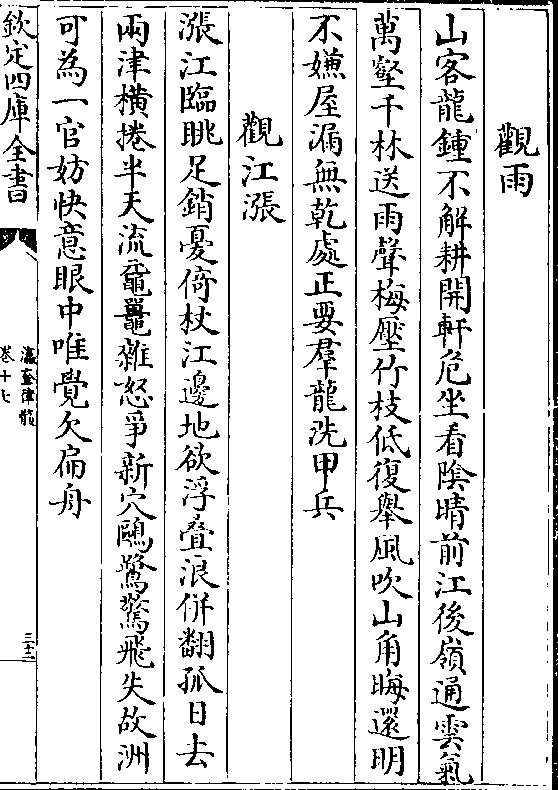 觀雨
山客龍鍾不解耕開軒危坐看陰晴前江後嶺通雲氣
萬壑千林送雨聲梅壓竹枝低復舉風吹山角晦還明
不嫌屋漏無乾處正要羣龍洗甲兵
觀江漲
漲江臨眺足銷憂倚杖江邊地欲浮疊浪併翻孤日去
兩津橫捲半天流黿鼉雜怒爭新穴鷗鷺驚飛失故洲
可為一官妨快意眼中唯覺欠扁舟
欽定四庫全書
瀛奎律髓
卷十七
三十二